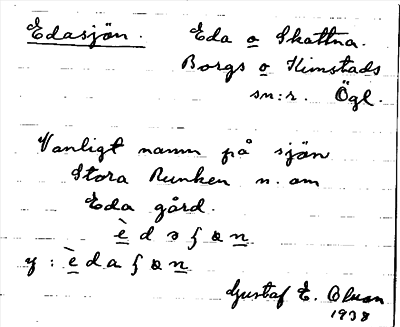 Edasjön. Eda o Skattna.
Borgs o Kimstads
sn:r. Ögl.
Vanligt namn på sjön
Stora Runken n. om
Eda gård.
è d ɔ ʃ ɷ n
y : è d a ʃ ɷ n
Gustaf E. Olson
1938